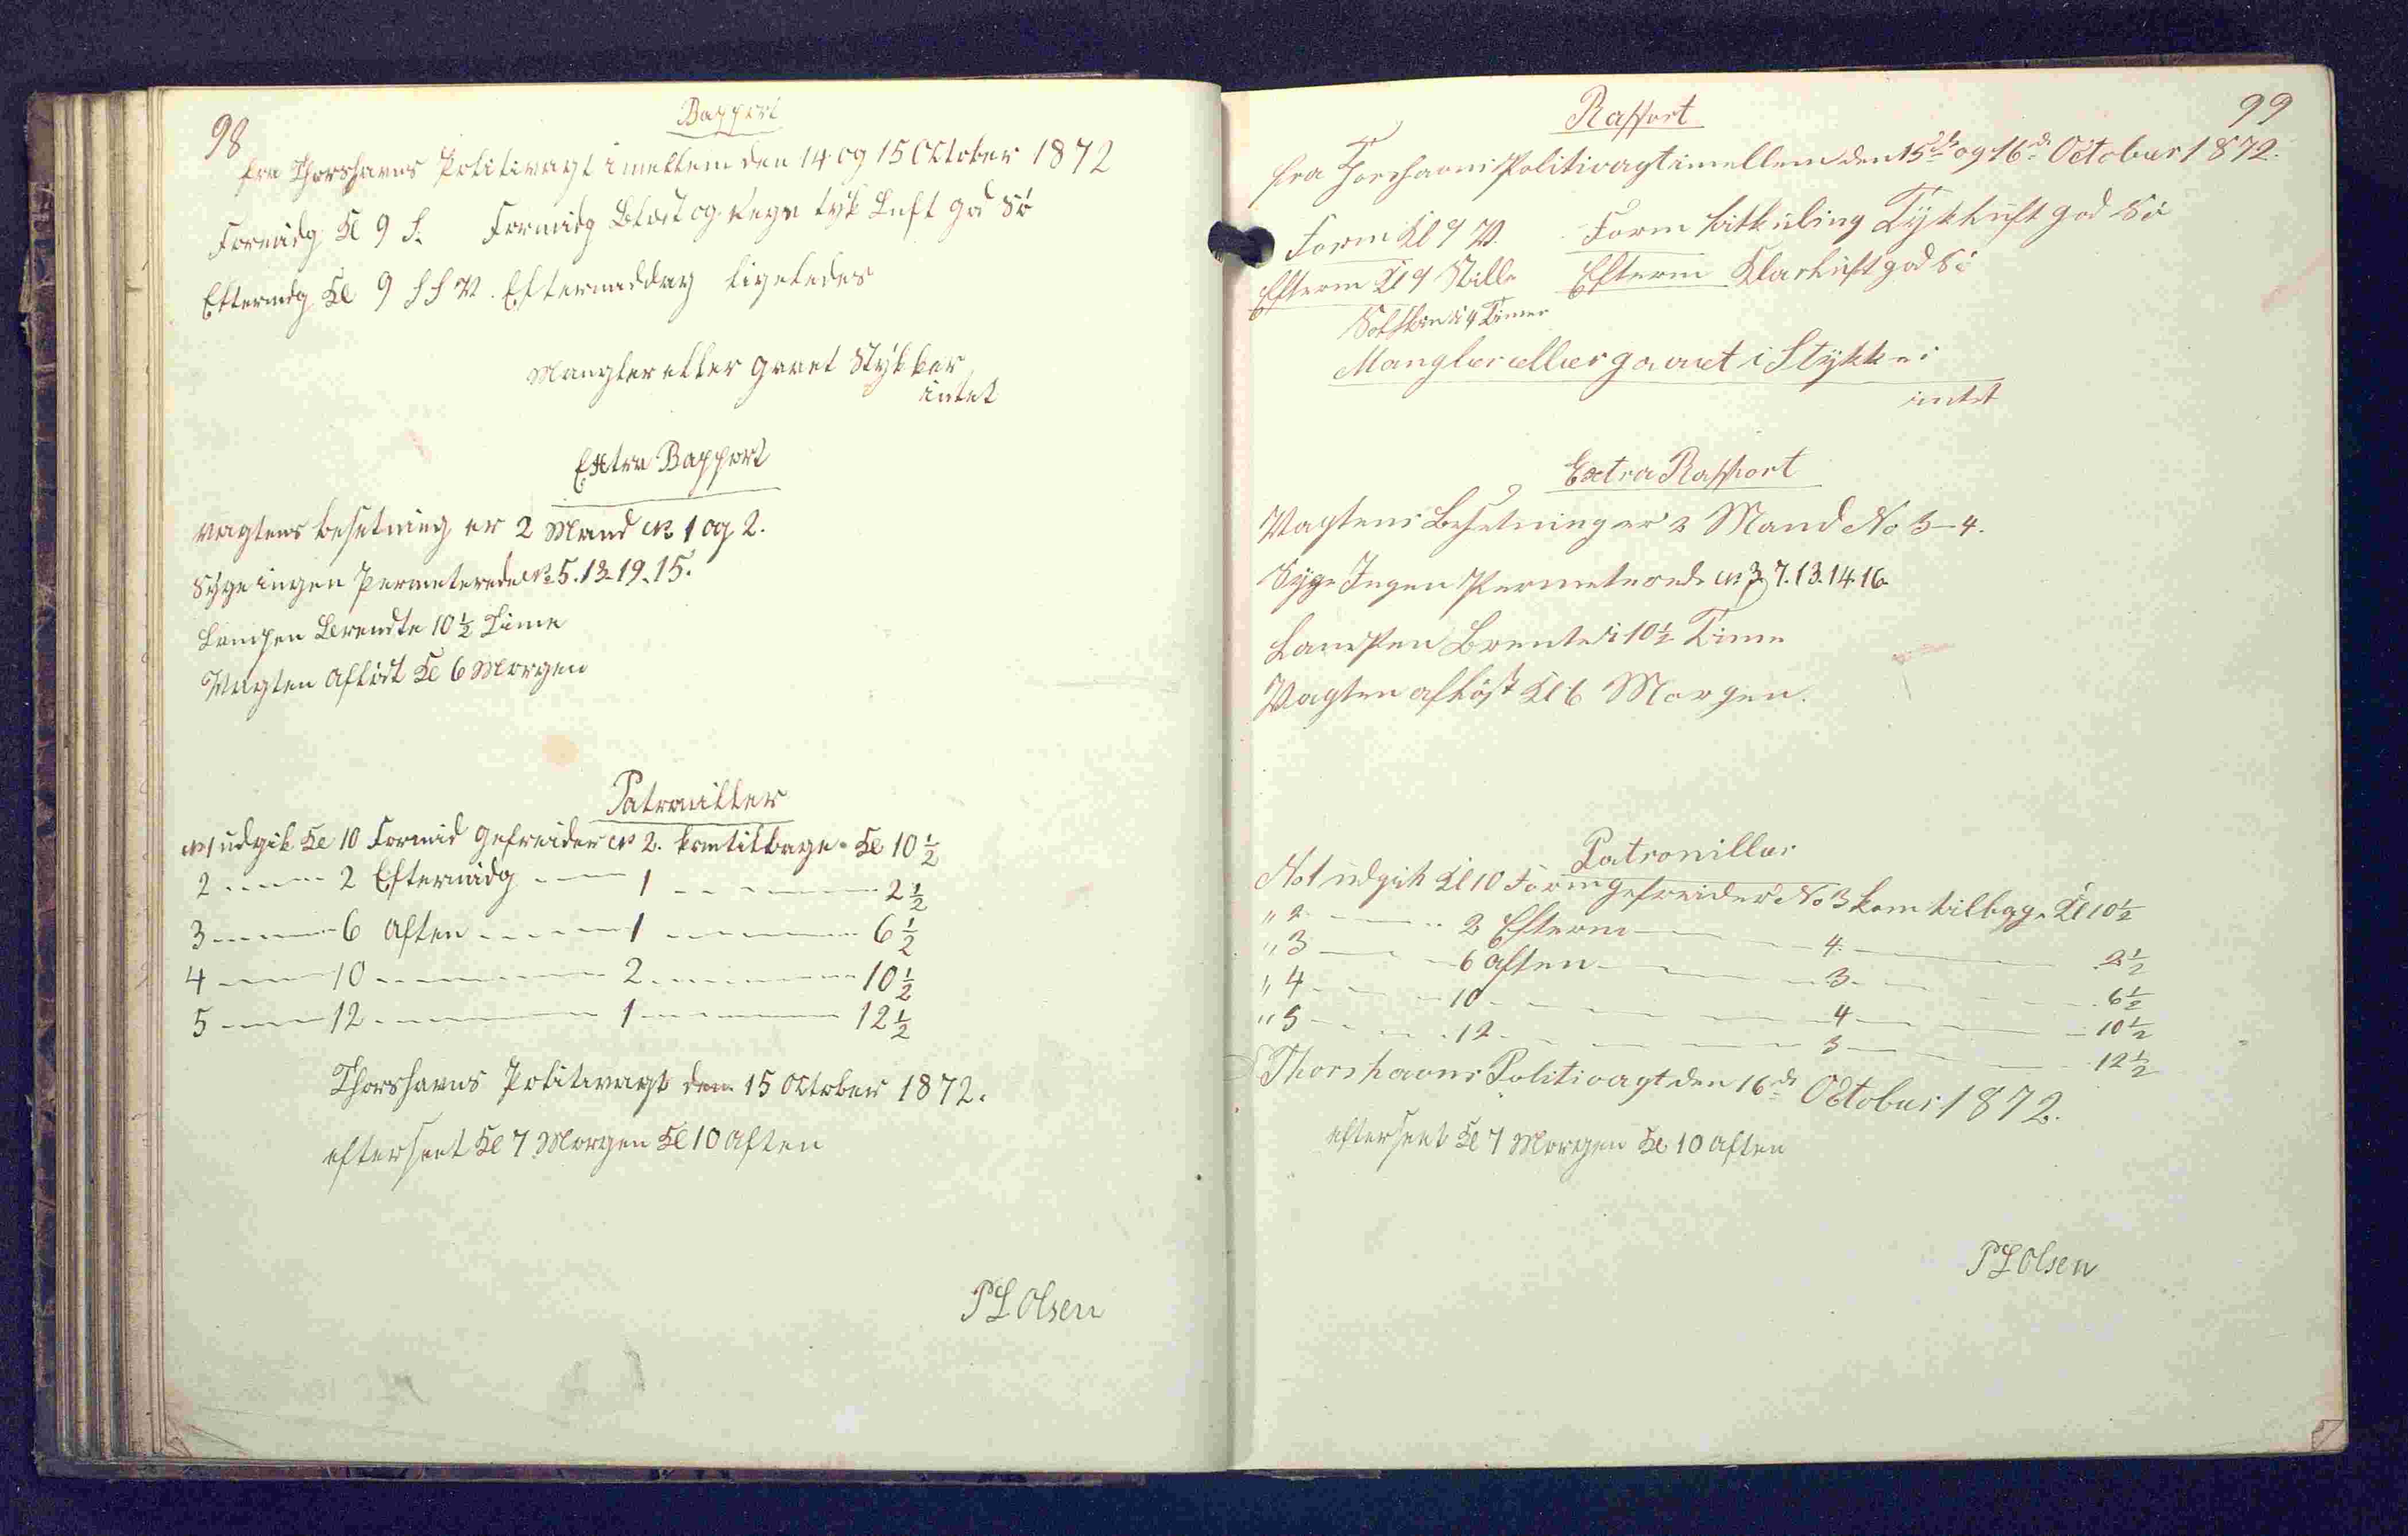 98
Rapport
fra Thorshavns Politivagt imellem den 14 og 15 October 1872
Formidg Kl 9 S. Formidg Blæst og Regn tyk Luft god Sö
Eftermdg Kl 9 SSV. Eftermaddag ligeledes
Mangler eller gaaet Stykker
intet
Extra Rapport
Vagtens besetning er 2 Mand No 1 og 2.
Syge ingen Permeterede No 5. 13. 19. 15.
Lampen Brendte 10 1/2 Time
Vagten aflöst Kl 6 Morgen
Patrouiller
No 1 udgik Kl 10 Formid gefreider No 2. kom tilbage Kl 10 1/2
2 ------ 2 Eftermidg ---- 1 ------ 2 1/2
3 ------ 6 Aften ---- 1 ------ 6 1/2
4 ------ 10 ------ 2 ------ 10 1/2
5 ------ 12 ------ 1 ------ 12 1/2
Thorshavns Politivagt den 15 October 1872.
efterseet Kl 7 Morgen Kl 10 Aften
PL Olsen
99
Rapport
fra Thorshavns Politivagt imellem den 15de og 16de October 1872.
Form Kl 9 V. Form lit kuling Tyk Luft god Sö
Efterm Kl 9 Stille Efterm Klar Luft god Sö
Solskin i 4 Timer
Mangler eller gaaet i Stykker
intet
Extra Rapport
Vagtens Besetning er 2 Mand No 3-4.
Syge Ingen Permeterede No 3, 7. 13. 14. 16
Lampen Brente i 10 1/2 Time
Vagten aflöst Kl 6 Morgen.
Patrouiller
No 1 udgik Kl 10 Form gefreider No 3 kom tilbage Kl 10 1/2
" 2 ------ 2 Efterm ------ 4 ------ 2 1/2
" 3 ------ 6 Aften ------ 3 ------ 6 1/2
" 4 ------ 10 ------ 4 ------ 10 1/2
" 5 ------ 12 ------ 3 ------ 12 1/2
Thorshavns Politivagt den 16de October 1872.
efterseet Kl 7 Morgen Kl 10 Aften
PL Olsen